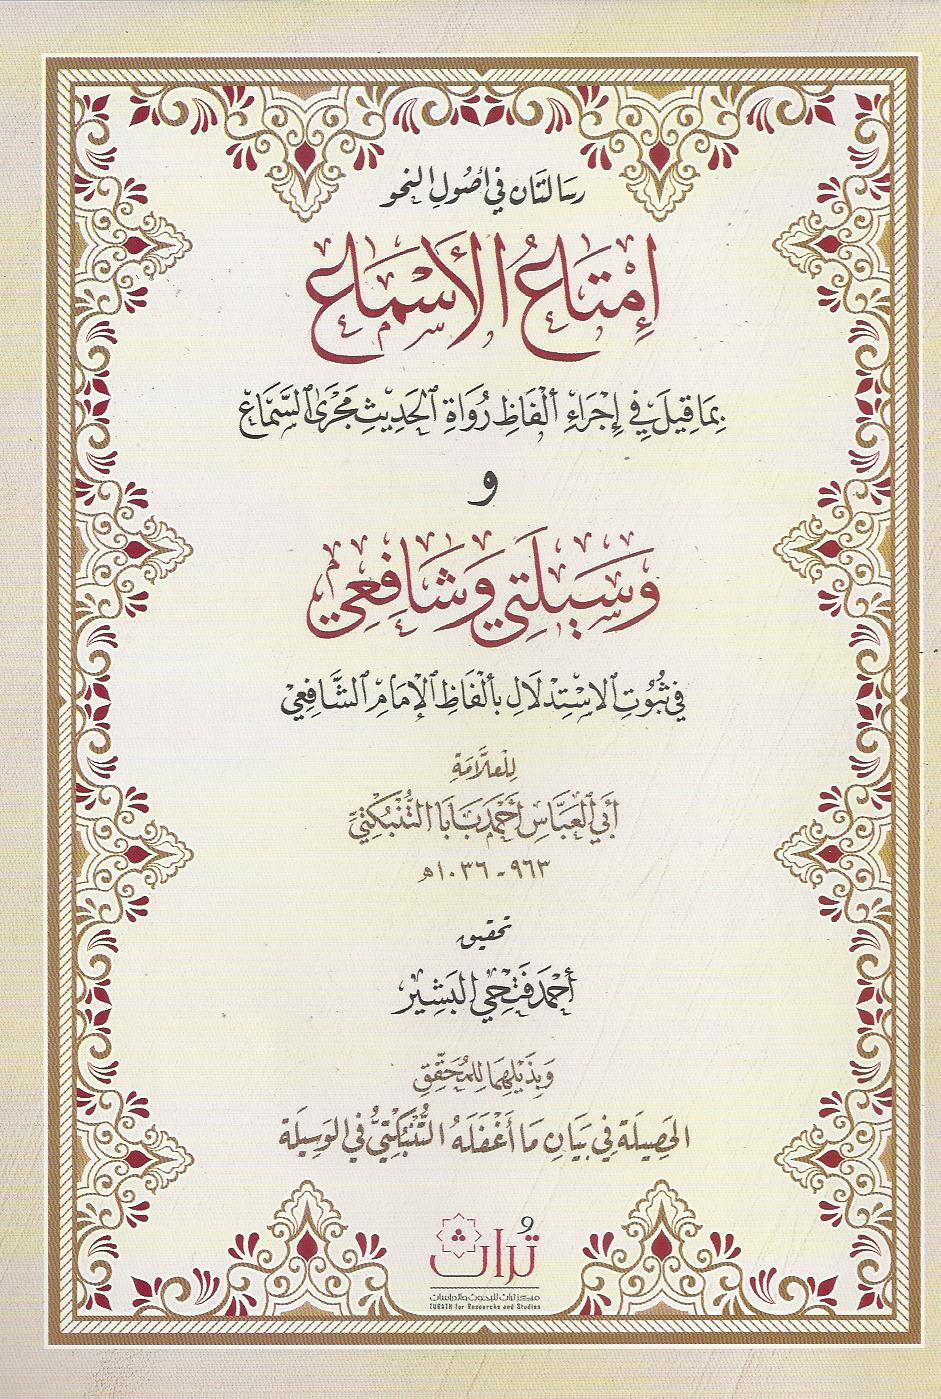 رسالتان في أصول النحو
إِمْتَاعُ الأَسْمَاعِ
بِمَا قِيلَ فِي إِجْرَاءِ أَلْفَاظِ رُوَاةِ الْحَدِيثِ مَجْرَى السَّمَاعِ
و
وَسِيلَتِي وَشَافِعِي
فِي ثُبُوتِ الِاسْتِدْلَالِ بِأَلْفَاظِ الْإِمَامِ الشَّافِعِيْ
لِلْعلَّامَةِ
أَبِي الْعَبَّاسِ أَحْمَدَ بَابَا التُّنْبُكْتِيِّ
٩٦٣ - ١٠٣٦هـ
تحقيق
أَحْمَد فَتْحِي البَشِير
وَبِذَيْلِهِمَا لِلْمُحَقِّقِ
الحَصِيلَة فِي بَيَانِ مَا أَغْفَلَهُ التُّنْبُكْتِيُّ فِي الوَسِيلَة
تُراث
مركز تراث للبحوث والدراسات
TURATH for Researchs and Studies